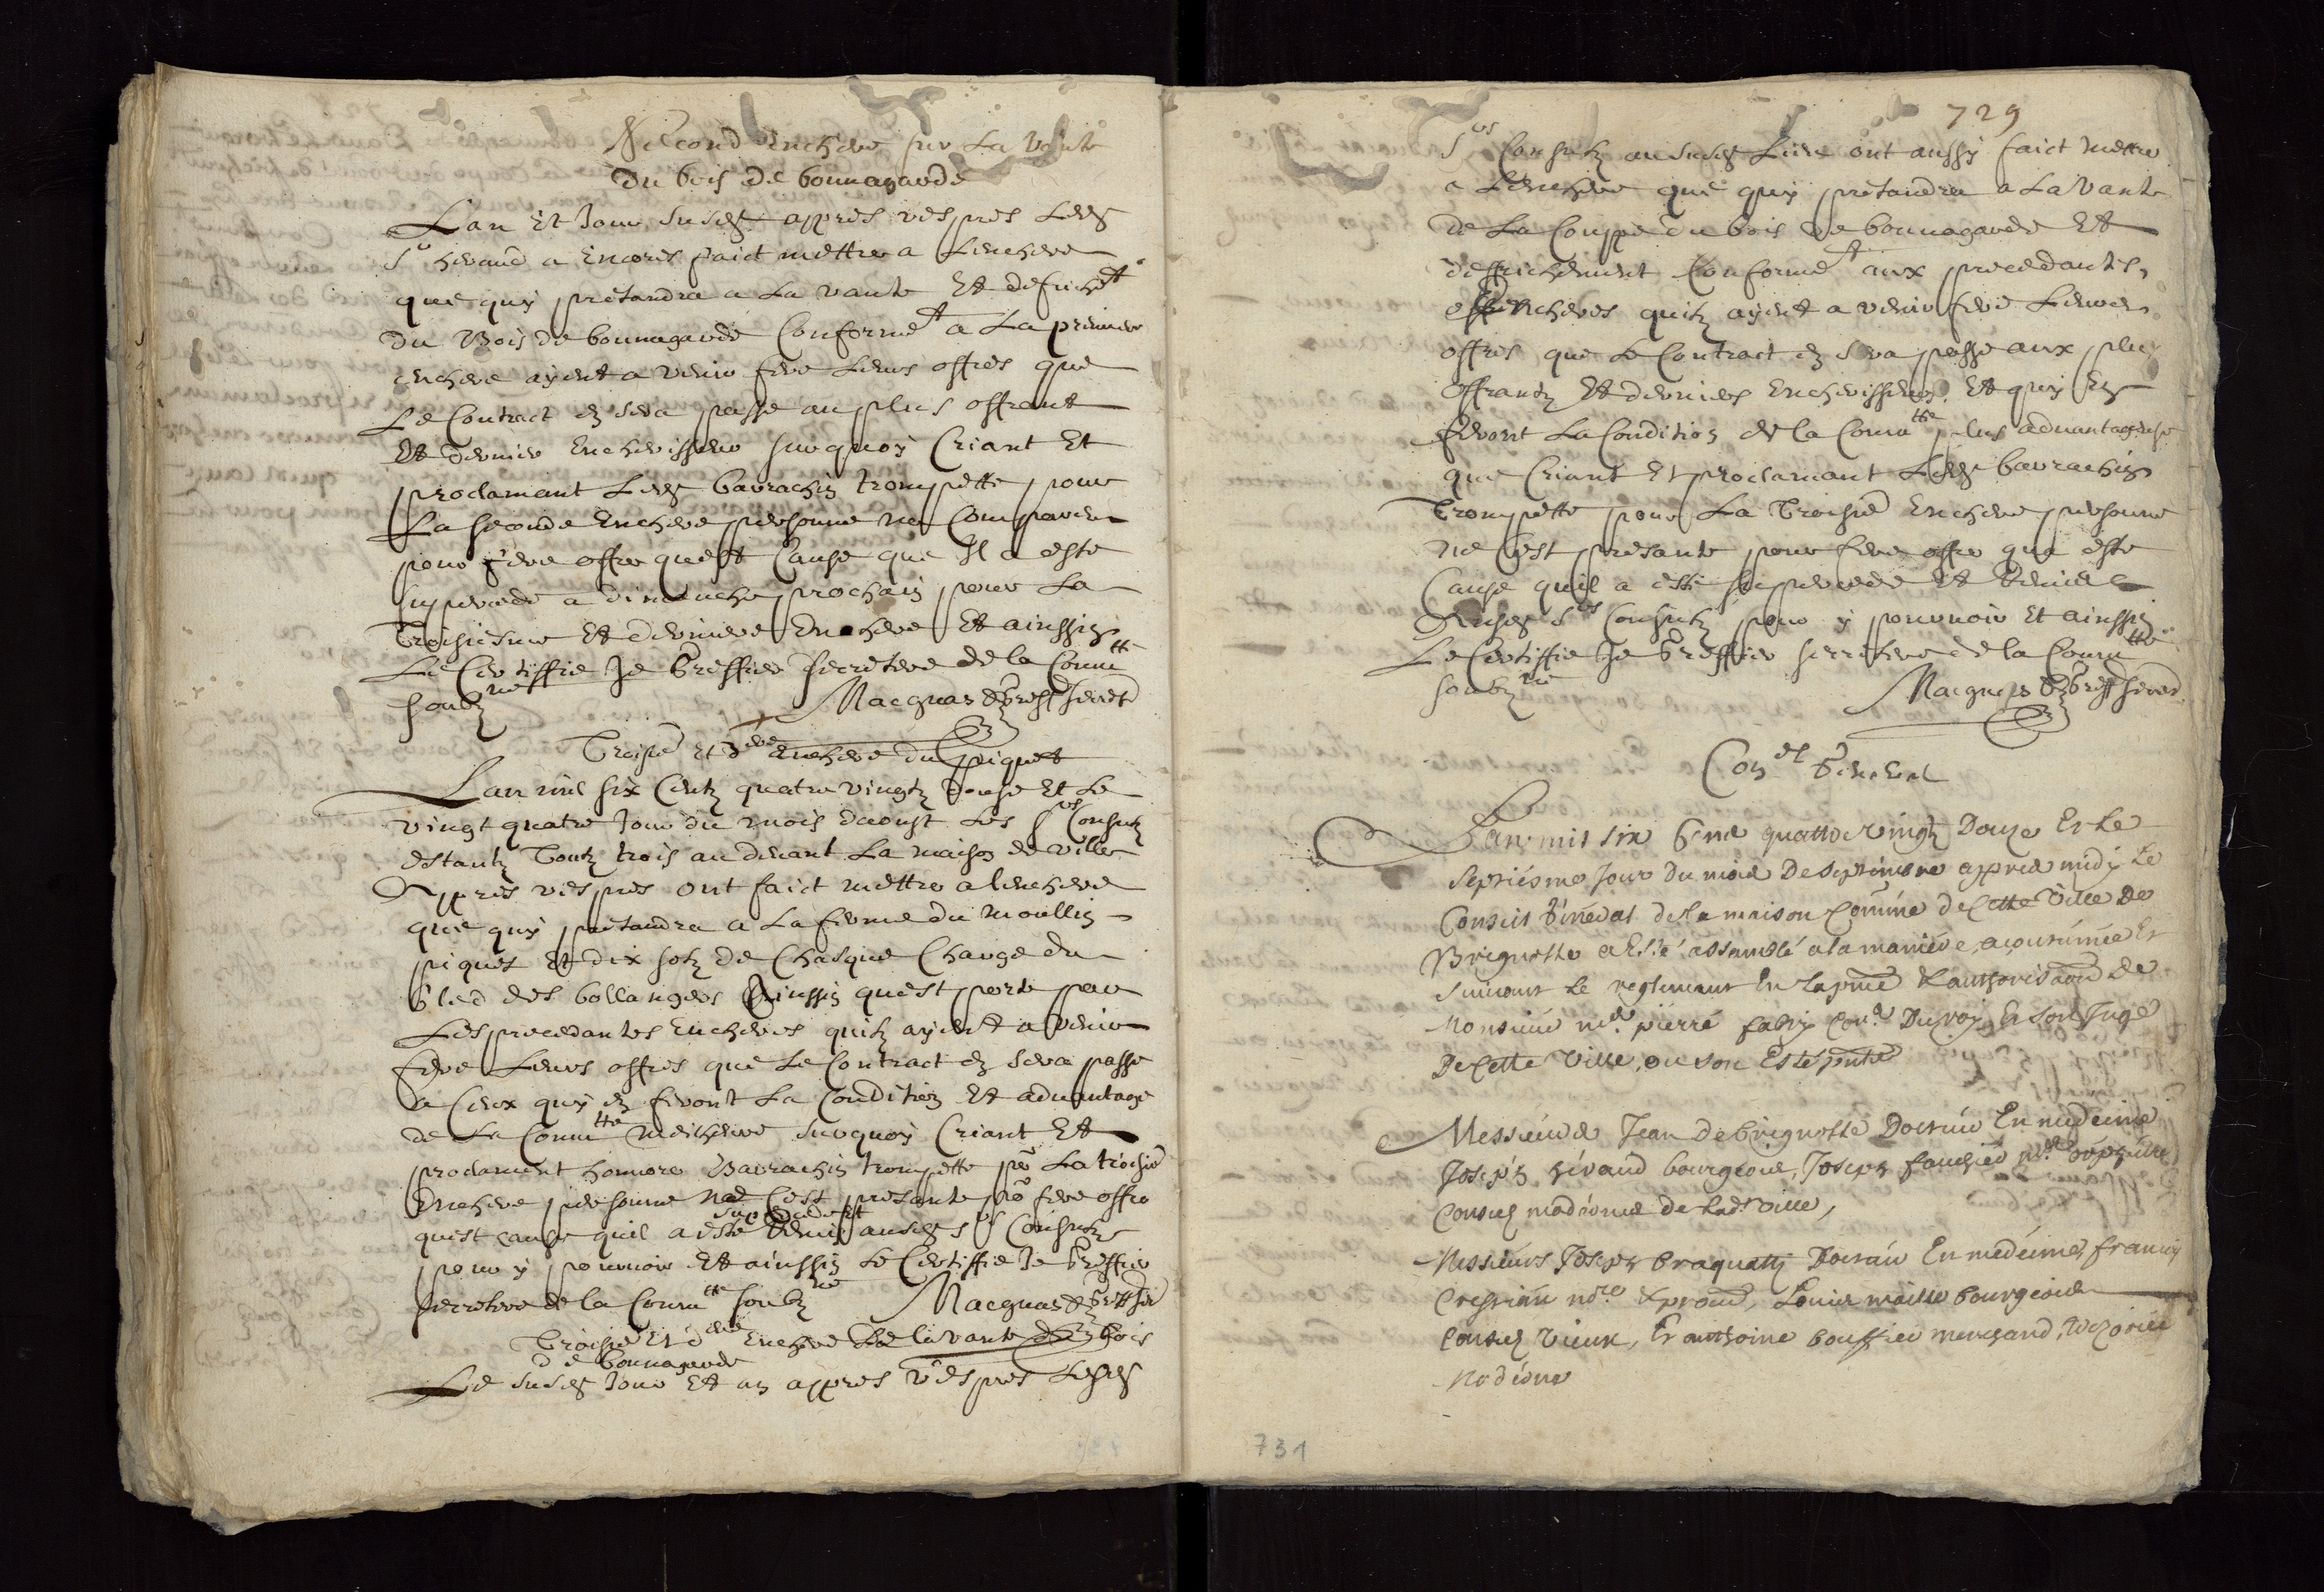 Second enchere sur la vante
du bois de bonnagarde
L'an et Jour susd apprés vespres Led
Sr heraud a encores faict mettre a Lenchere
que quy prétandra a la vante Et defrichet
du Bois de bonnagarde Conformet a La premiere
enchere ayent a venir fere Leurs offres que
Le Contract en sera passé au plus offrant
Et dernier Encherisseur surquoy Criant Et
proclamant Led barrachin trompette pour
La seconde Enchere personne ne Comparu
pour fere offre quest Cause que Il a esté
supercedé a dimanche prochain pour La
Troisiesme Et derniere Enchere Et ainssin
Le Certiffie Je Greffier secretere de la Commtté
soubzné Macquas Greff secret
Troisie et dre enchere du piquet
Lan mil six Centz quatre vingtz Douse Et Le
vingt quatre Jour du mois daoust Les Srs Consulz
estantz Toutz trois au devant La maison de ville
Appres vespres ont faict mettre a lenchere
que quy prétandra a La ferme du moullin
piquet Et dix solz de Chasque Charge du
bled des bollangers Ainssin quest porté par
Les precedantes Encheres quilz ayent a venir
fere Leurs offres que Le Contract en sera passé
a Ceux quy en feront La Condition Et advantage
de La Commtté Meilheure surquoy Criant Et
proclament honnore Barrachin trompette po La troisie
Enchere personne ne sest presanté po fere offre
supercedé et
quest cause quil a esté remis ausd Srs Consulz
pour y pourvoir Et ainssin Le Certiffie Je Greffier
secretere de la Commtté soubzné Macquas Greff se
Troisie Et dre Enchere de la vante du bois
de bonnagarde
Le susd Jour Et an appres vespres Lesd
729
Srs Consulz au susd Lieu ont aussy faict mettre
a Lenchere que quy prétandra a La vante
de La Couppe du bois de bonnagarde Et
deffrichement Conformet aux precedantes
Encheres quilz ayent a venir fere Leurs
offres que Le Contract en sera passé aux plus
offrantz Et derniers Encherisseurs Et quy En
feront La Condition de la Commtté plus advantageuse
que Criant Et proclamant Led barrachin
Trompette pour La Troisie Enchere personne
ne sest presanté pour fere offre qua esté
Cause quil a esté supercedé Et remis
Ausd Srs Consulz pour y pourvoir Et ainssin
Le Certiffie Je Greffier secretere de la Commtté
soubzné Macquas Greff secret
Conel General
L'an mil six Cens quattre vingtz Douze Et Le
septiesme Jour Du mois De septembre apprés midy Le
Conseil General de la maison Comune de Cette Ville De
Brignolle a Esté assamblé a la maniere acoutumée Et
suivant Le reglement En la pnce & authorisaon de
Monsieur mre pierre fabry Coner Du roy Et son Juge
De Cette Ville, ou son Esté pntz
Messieurs Jean De brignolle Docteur En medecine
Joseph heraud bourgeois, Joseph fauchier me orpheure
Consulz modernes de lade Ville,
Messieurs Joseph braquetty Docteur En medecine, francois
nore & procur, Louis maille bourgeois
Consulz vieux, Et anthoine bouffier marchand, trezorier
Moderne
731